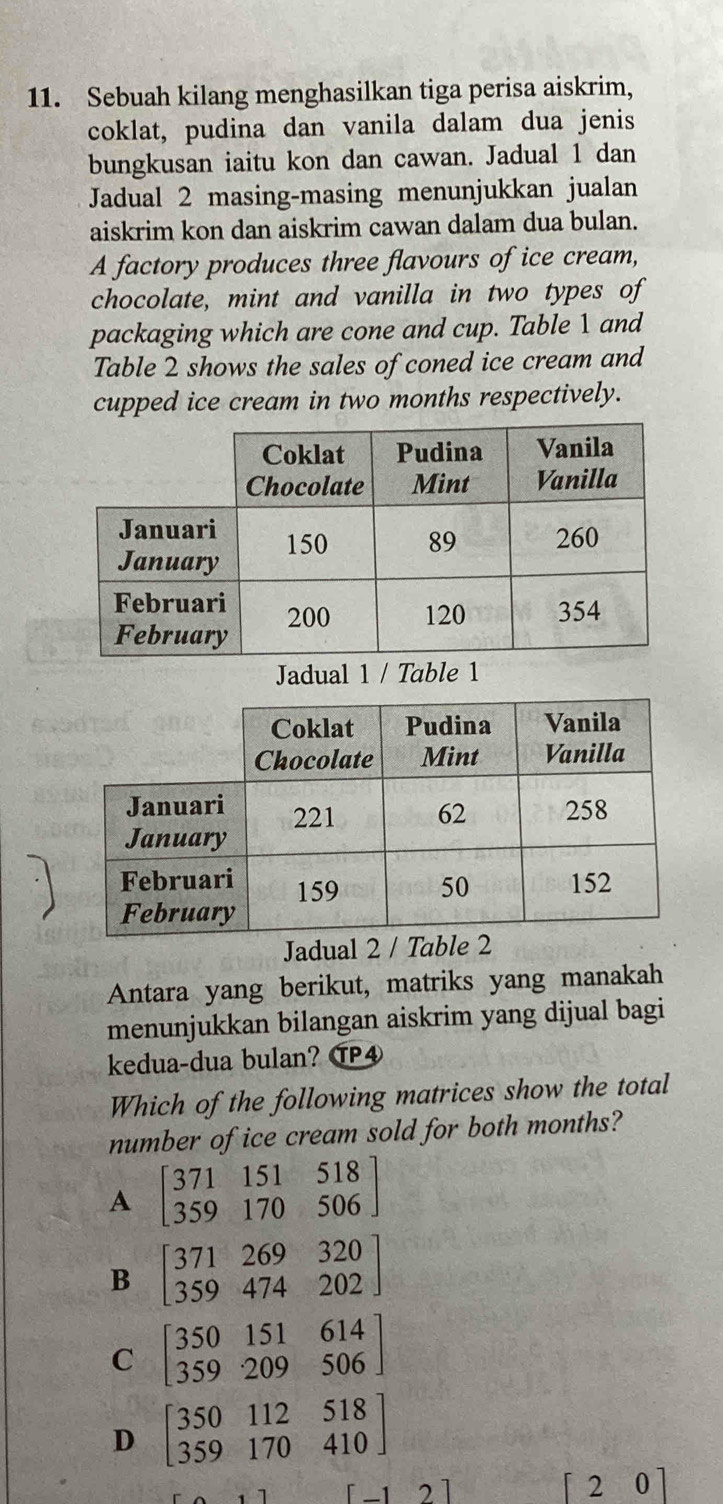 11. Sebuah kilang menghasilkan tiga perisa aiskrim,
coklat, pudina dan vanila dalam dua jenis
bungkusan iaitu kon dan cawan. Jadual 1 dan
Jadual 2 masing-masing menunjukkan jualan
aiskrim kon dan aiskrim cawan dalam dua bulan.
A factory produces three flavours of ice cream,
chocolate, mint and vanilla in two types of
packaging which are cone and cup. Table 1 and
Table 2 shows the sales of coned ice cream and
cupped ice cream in two months respectively.
Coklat Pudina Vanila
Chocolate Mint Vanilla
Januari
January 150 89 260
Februari
February 200 120 354
Jadual 1 / Table 1
Coklat Pudina Vanila
Chocolate Mint Vanilla
Januari
January 221 62 258
Februari
February 159 50 152
Jadual 2 / Table 2
Antara yang berikut, matriks yang manakah
menunjukkan bilangan aiskrim yang dijual bagi
kedua-dua bulan? TP4
Which of the following matrices show the total
number of ice cream sold for both months?
A [371 151 518
359 170 506]
B [371 269 320
359 474 202]
C [350 151 614
359 209 506]
D [350 112 518
359 170 410]
[-1 2] [2 0]